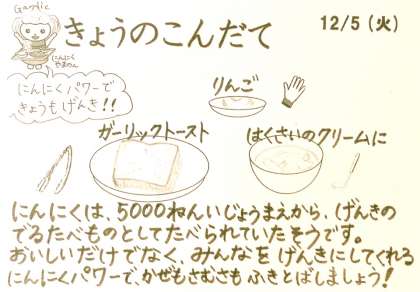 Garlic
きょうのこんだて
12/5(火)
にんにく
やまのん
にんにくパワーで
きょうもげんき!!
りんご
ガーリックトースト
はくさいのクリームに
にんにくは、5000ねんいじょうまえから、げんきの
でるたべものとしてたべられていたそうです。
おいしいだけでなく、みんなをげんきにしてくれる
にんにくパワーで、かぜもさむさもふきとばしましょう!